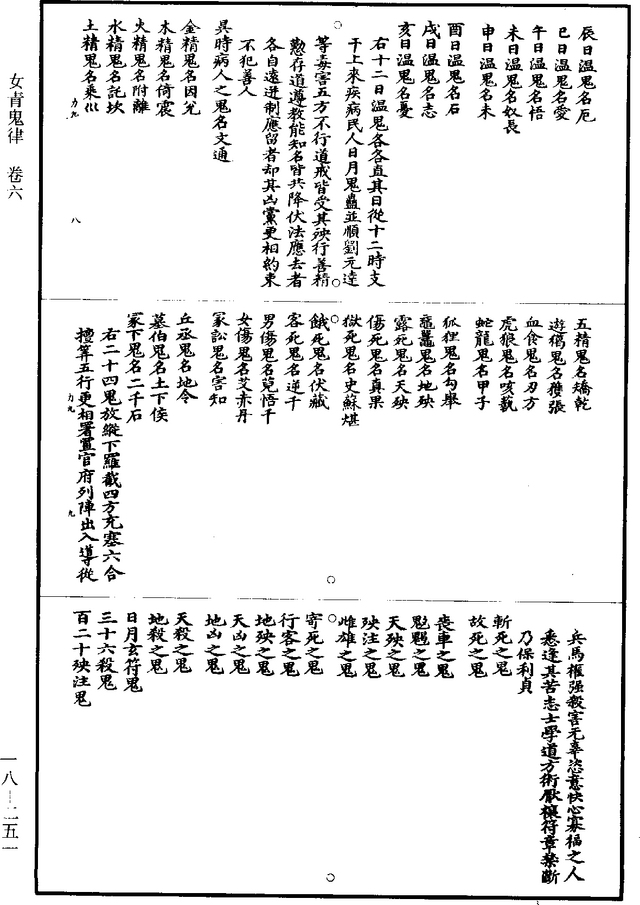 辰日温鬼名厄
巳日温鬼名愛
午日温鬼名悟
未日温鬼名奴長
申日温鬼名未
酉日温鬼名石
戌日温鬼名志
亥日温鬼名憂
右十二日温鬼各各直其日從十二時支
干上來疾病民人日月鬼蠱並順劉元達
等毒害五方不行道戒皆受其殃行善精
懃存道遵教能知名皆共降伏法應去者
各自遠迸制應留者却其凶黨更相約束
不犯善人
異時病人之鬼名文通
金精鬼名因兌
木精鬼名倚震
火精鬼名附離
水精鬼名託坎
土精鬼名乘巛
力九
八
五精鬼名矯乾
遊殤鬼名獲張
血食鬼名刃方
虎狼鬼名咳載
蛇龍鬼名甲子
狐狸鬼名勾舉
鼃鼉鬼名地殃
露死鬼名天殃
傷死鬼名真果
獄死鬼名史蘇堪
餓死鬼名伏藏
客死鬼名逆千
男傷鬼名莧悟千
女傷鬼名艾赤丹
冢訟鬼名害知
丘丞鬼名地令
墓伯鬼名土下侯
冢下鬼名二千石
右二十四鬼放縱下羅截四方充塞六合
擅筭五行更相署置官府列陣出入導從
力九
九
兵馬權强殺害无辜恣意快心寡福之人
悉逢其苦志士學道方術厭禳符章禁斷
乃保利貞
斬死之鬼
故死之鬼
喪車之鬼
魁魍之鬼
天殃之鬼
殃注之鬼
雌雄之鬼
寄死之鬼
行客之鬼
地殃之鬼
天凶之鬼
地凶之鬼
天殺之鬼
地殺之鬼
日月玄符鬼
三十六殺鬼
百二十殃注鬼
女青鬼律 卷六
一八-二五一